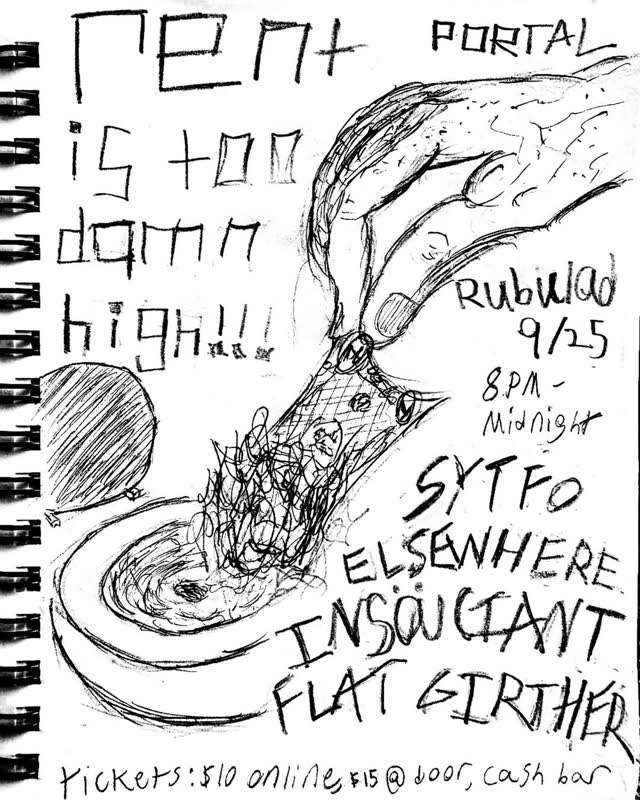 rent
PORTAL
is too
damn
high!!!
Rubulad
9/25
8PM -
Midnight
SYTFO
ELSEWHERE
INSÖUCIANT
FLAT GIRTHER
tickets: $10 online, $15 @ door, cash bar